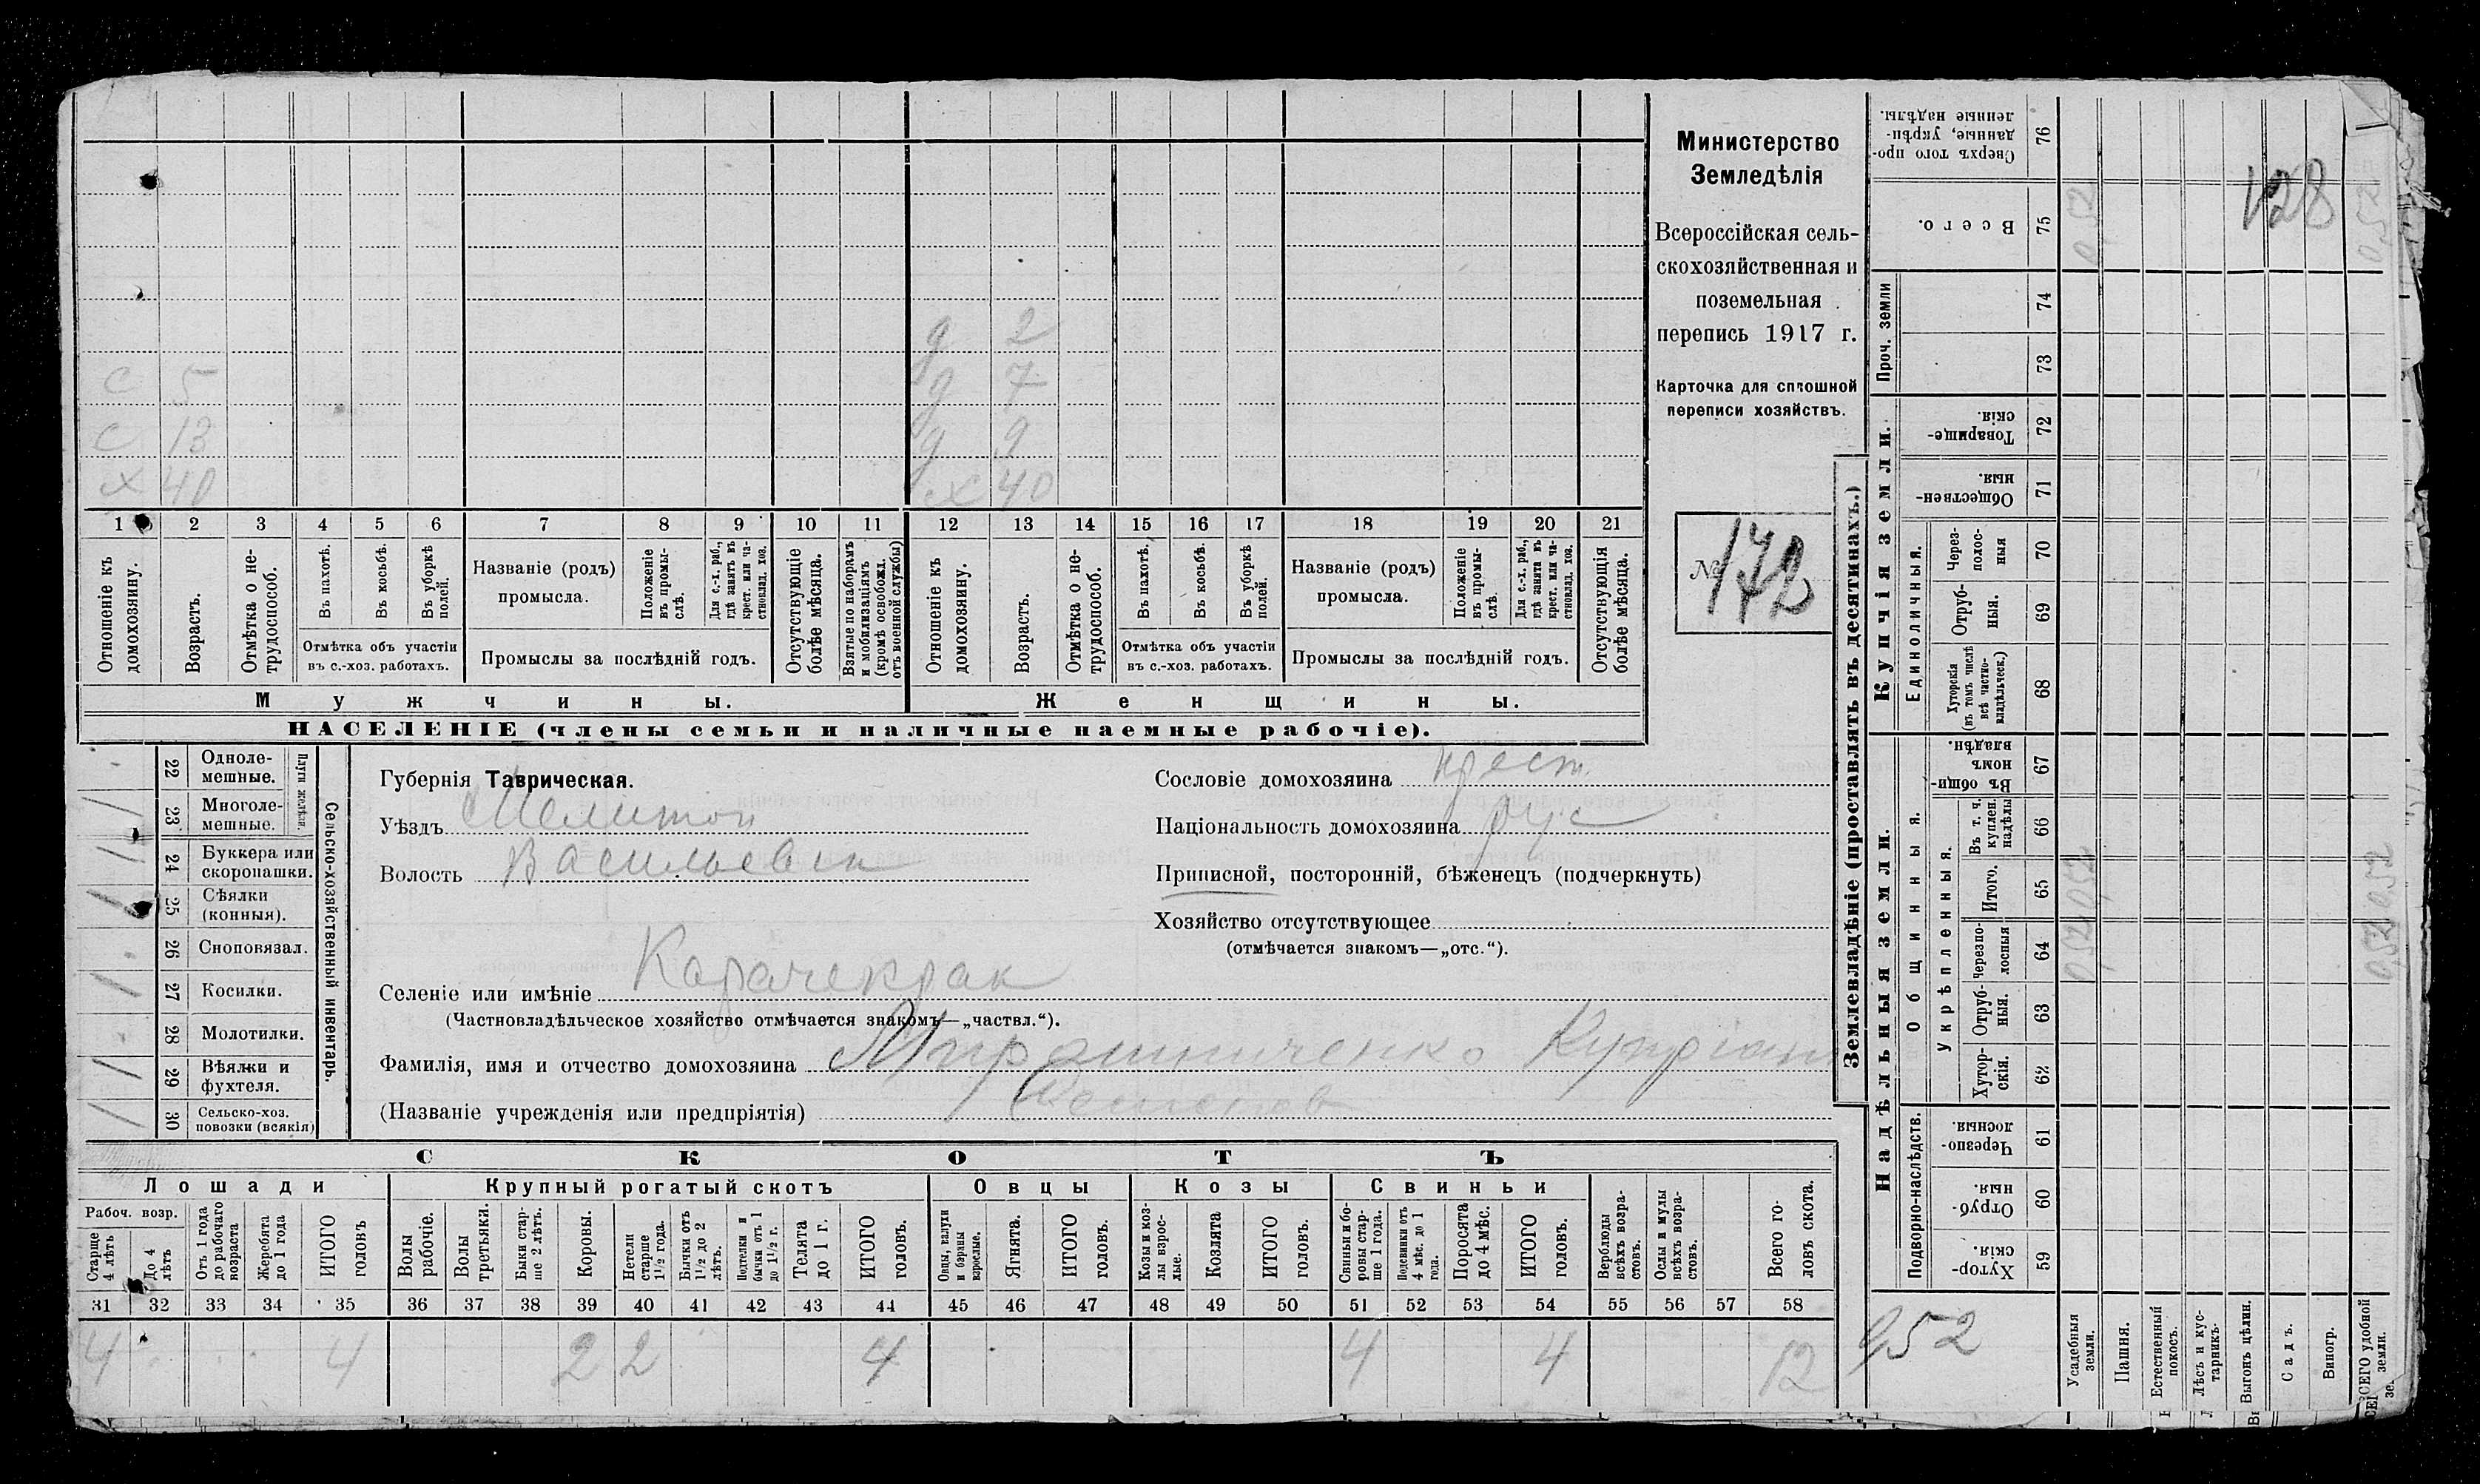 Министерство
Земледѣлія
Всероссійская сель-
скохозяйственная и
поземельная
перепись 1917 г.
Карточка для сплошной
переписи хозяйствъ.
№ 172
128
д 2
С 5 д 7
С 13 д 9
х 40 х 40
1 2 3 4 5 6 7 8 9 10 11 12 13 14 15 16 17 18 19 20 21
Отношеніе къ домохозяину.
Возрастъ.
Отмѣтка о не-трудоспособ.
Въ пахотѣ.
Въ косьбѣ.
Въ уборкѣ полей.
Отмѣтка объ участіи
въ с.-хоз. работахъ.
Названіе (родъ)
промысла.
Положеніе въ промы-слѣ.
Для с.-х. раб., гдѣ занятъ въ крест. или ча-стновлад. хоз.
Промыслы за послѣдній годъ.
Отсутствующіе болѣе мѣсяца.
Взятые по наборамъ и мобилизаціямъ (кромѣ освобожд. отъ военной службы)
Отношеніе къ домохозяину.
Возрастъ.
Отмѣтка о не-трудоспособ.
Въ пахотѣ.
Въ косьбѣ.
Въ уборкѣ полей.
Отмѣтка объ участіи
въ с.-хоз. работахъ.
Названіе (родъ)
промысла.
Положеніе въ промы-слѣ.
Для с.-х. раб., гдѣ занята въ крест. или ча-стновлад. хоз.
Промыслы за послѣдній годъ.
Отсутствующія болѣе мѣсяца.
Мужчины.
Женщины.
НАСЕЛЕНІЕ (члены семьи и наличные наемные рабочіе).
Сельско-хозяйственный инвентарь.
Плуги желѣзн.
22 Одноле-
мешные.
1 23 Многоле-
мешные.
1 24 Буккера или
скоропашки.
1 25 Сѣялки
(конныя).
26 Сноповязал.
1 27 Косилки.
28 Молотилки.
1 29 Вѣялки и
фухтеля.
1 30 Сельско-хоз.
повозки (всякія)
Губернія Таврическая.
Уѣздъ Мелитоп
Волость Васильевск
Сословіе домохозяина крест.
Національность домохозяина рус
Приписной, посторонній, бѣженецъ (подчеркнуть)
Хозяйство отсутствующее
(отмѣчается знакомъ—„отс.“).
Селеніе или имѣніе Карачекрак
(Частновладѣльческое хозяйство отмѣчается знакомъ—„частвл.“).
Фамилія, имя и отчество домохозяина Мирошниченко Купріан
(Названіе учрежденія или предпріятія)
СКОТЪ
Лошади
Крупный рогатый скотъ
Овцы
Козы
Свиньи
Рабоч. возр.
Старше 4 лѣтъ
До 4 лѣтъ
Отъ 1 года до рабочаго возраста
Жеребята до 1 года
ИТОГО головъ
Волы рабочіе.
Волы третьяки.
Быки стар-ше 2 лѣтъ.
Коровы.
Нетели старше 1½ года.
Бычки отъ 1½ до 2 лѣтъ.
Подтелки и бычки отъ 1 до 1½ г.
Телята до 1 г.
ИТОГО головъ.
Овцы, валухи и бараны взрослые.
Ягнята.
ИТОГО головъ.
Козы и коз-лы взрос-лые.
Козлята
ИТОГО головъ.
Свиньи и бо-ровы стар-ше 1 года.
Подсвинки отъ 4 мѣс. до 1 года.
Поросята до 4 мѣс.
ИТОГО головъ.
Верблюды всѣхъ возра-стовъ.
Ослы и мулы всѣхъ возра-стовъ.
Всего го-ловъ скота.
31 32 33 34 35 36 37 38 39 40 41 42 43 44 45 46 47 48 49 50 51 52 53 54 55 56 57 58
4 4 2 2 4 4 4 12
Землевладѣніе (проставлять въ десятинахъ.)
Надѣльныя земли.
Купчія земли.
Проч. земли
Подворно-наслѣдств.
Общинныя.
Укрѣпленныя.
Единоличныя.
Сверхъ того про-данные, укрѣп-ленные надѣлы. 76
Всего. 75 0,52 0,52
74
73
Товарище-скія. 72
Обществен-ныя. 71
Через-полос-ныя 70
Отруб-ныя. 69
Хуторскія (въ томъ числѣ всѣ частно-владѣльческ.) 68
Въ общин-номъ владѣн. 67
Въ т. ч. куплен. надѣлы 66
Итого. 65 0,52 0,52
Черезпо-лосныя 64 0,52 0,52
Отруб-ныя. 63
Хутор-скія. 62
Черезпо-лосныя. 61
Отруб-ныя. 60
Хутор-скія. 59
0,52
Усадебныя земли.
Пашня.
Естественный покосъ.
Лѣсъ и кус-тарникъ.
Выгонъ цѣлин.
Садъ.
Виногр.
ВСЕГО удобной земли.